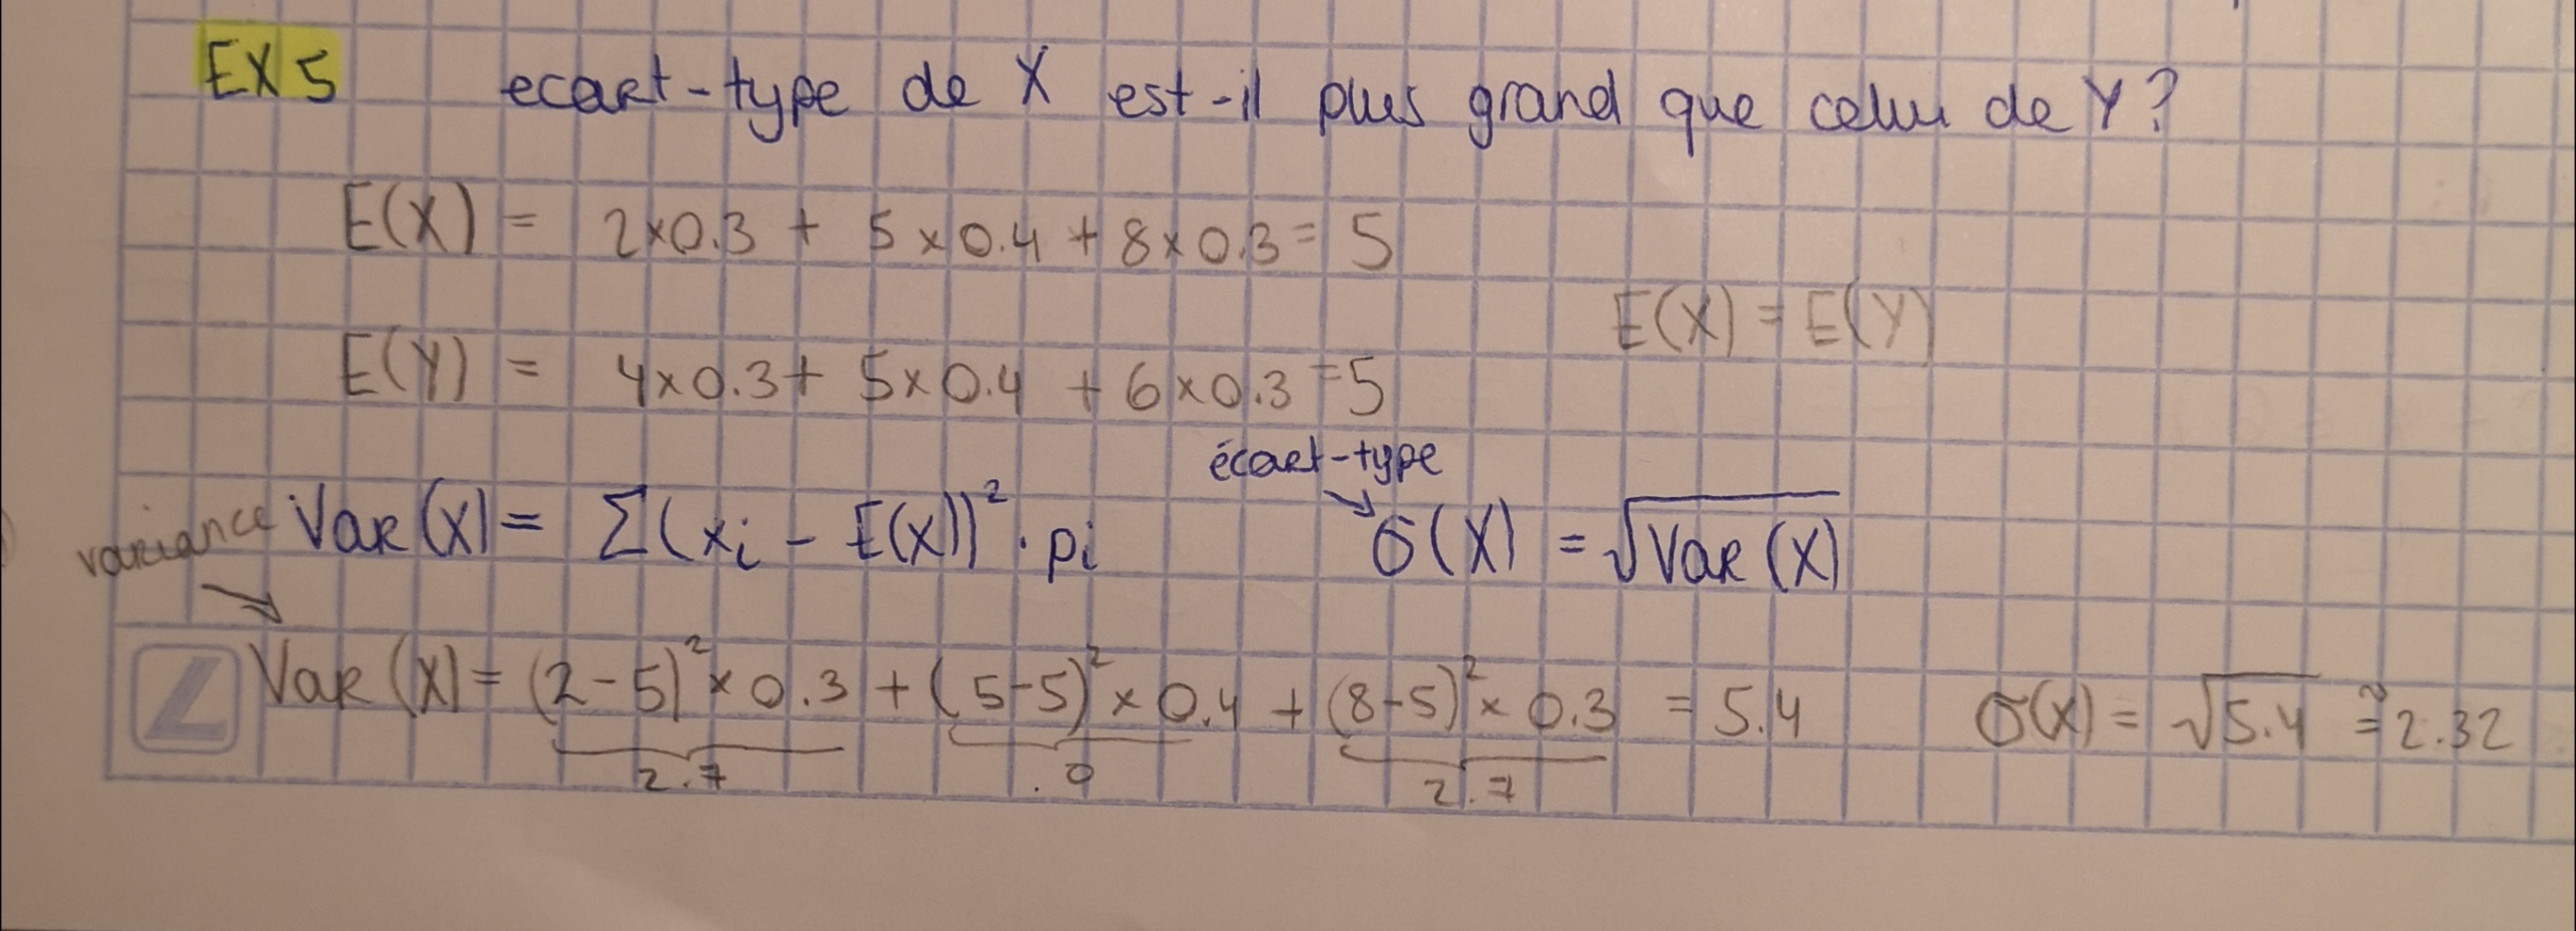 EX 5 ecart-type de X est-il plus grand que celui de Y?
E(X) = 2×0.3 + 5×0.4 + 8×0.3 = 5
E(X) = E(Y)
E(Y) = 4×0.3 + 5×0.4 + 6×0.3 = 5
écart-type
variance Var(X) = Σ(xi - E(X))² · pi σ(X) = √Var(X)
Var(X) = (2-5)² × 0.3 + (5-5)² × 0.4 + (8-5)² × 0.3 = 5.4 σ(X) = √5.4 ≅ 2.32
2.7 0 2.7